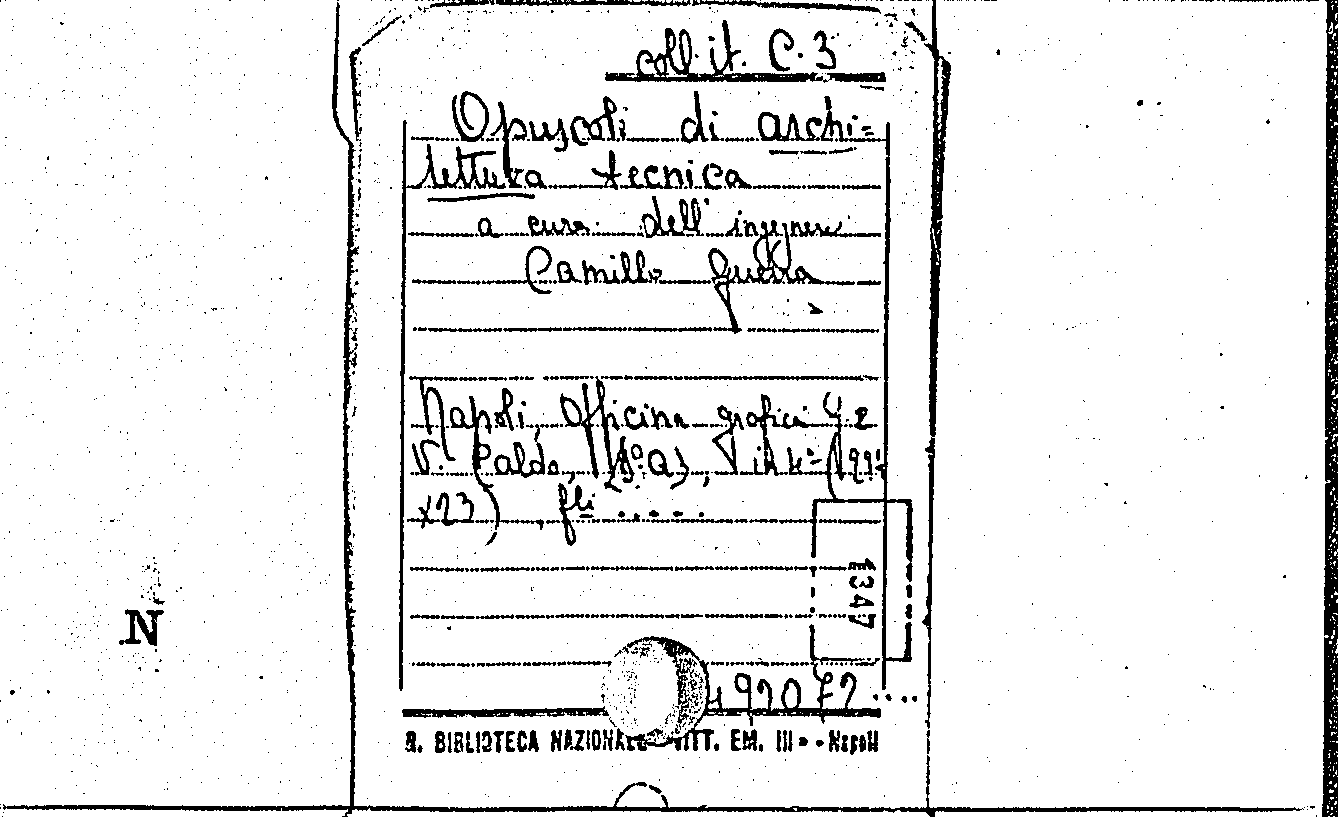 coll. it. C. 3
Opuscoli di archi=
tettura tecnica
a cura dell'ingegnere
Camillo Guerra
Napoli, Officina grafica G. e
V. Caldo, (S. a.), in 4° (
x23), fli .....
1347
492072 ....
R. BIBLIOTECA NAZIONALE VITT. EM. III - Napoli
N